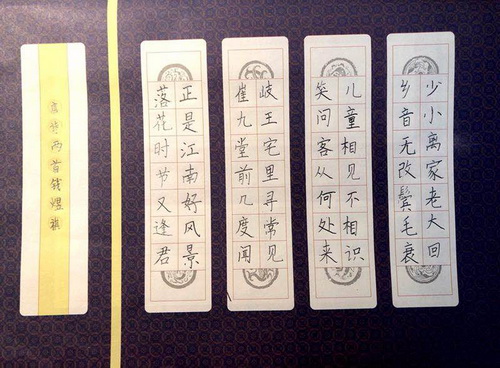 少小离家老大回
乡音无改鬓毛衰
儿童相见不相识
笑问客从何处来
岐王宅里寻常见
崔九堂前几度闻
正是江南好风景
落花时节又逢君
唐诗两首钱煜